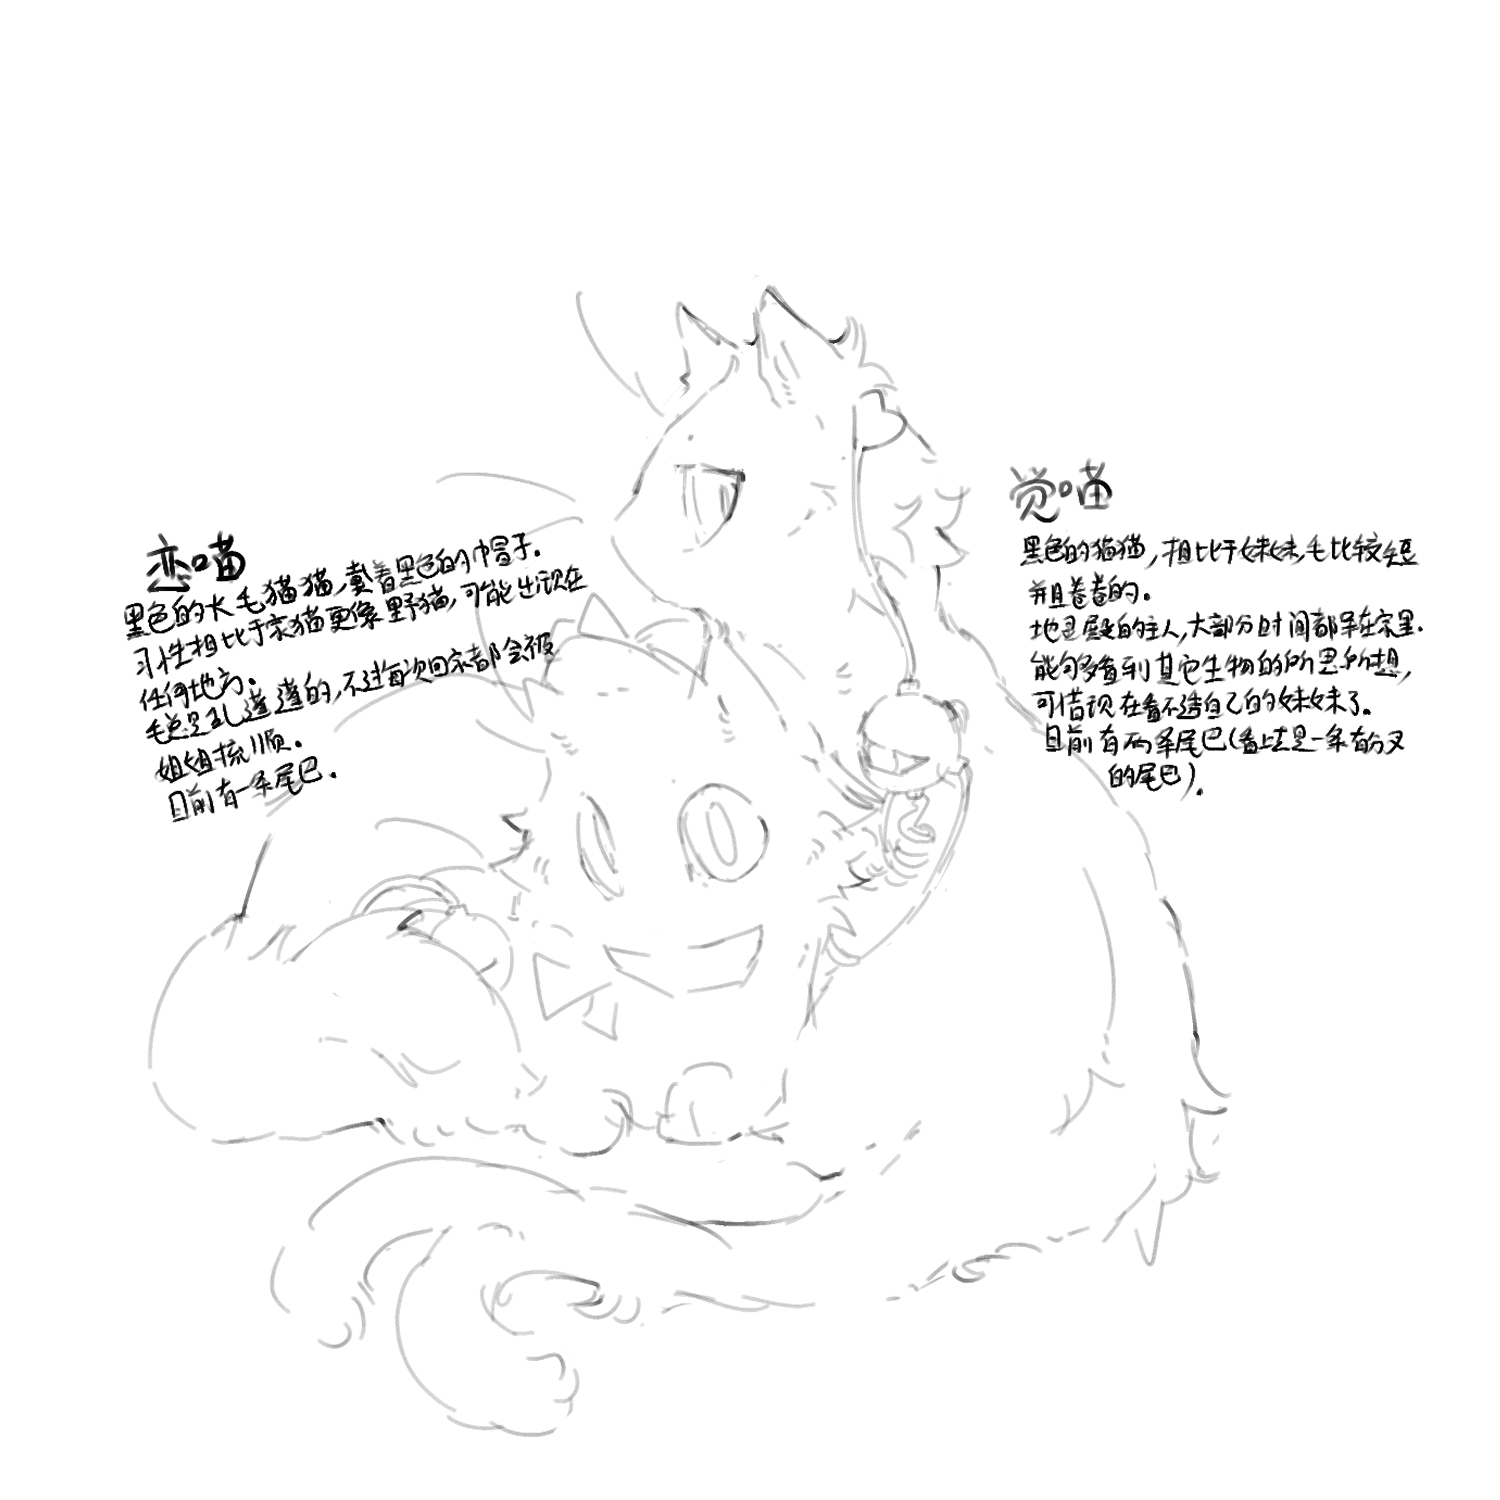 恋喵
黑色的长毛猫猫,戴着黑色的小帽子.
习性相比于家猫更像野猫,可能出现在
任何地方。
毛总是乱蓬蓬的,不过每次回家都会被
姐姐梳顺。
目前有一条尾巴.
觉喵
黑色的猫猫,相比于妹妹,毛比较短
并且卷卷的。
地灵殿的主人,大部分时间都呆在家里.
能够看到其它生物的所思所想,
可惜现在看不透自己的妹妹了。
目前有两条尾巴(看上去是一条有分叉
的尾巴).